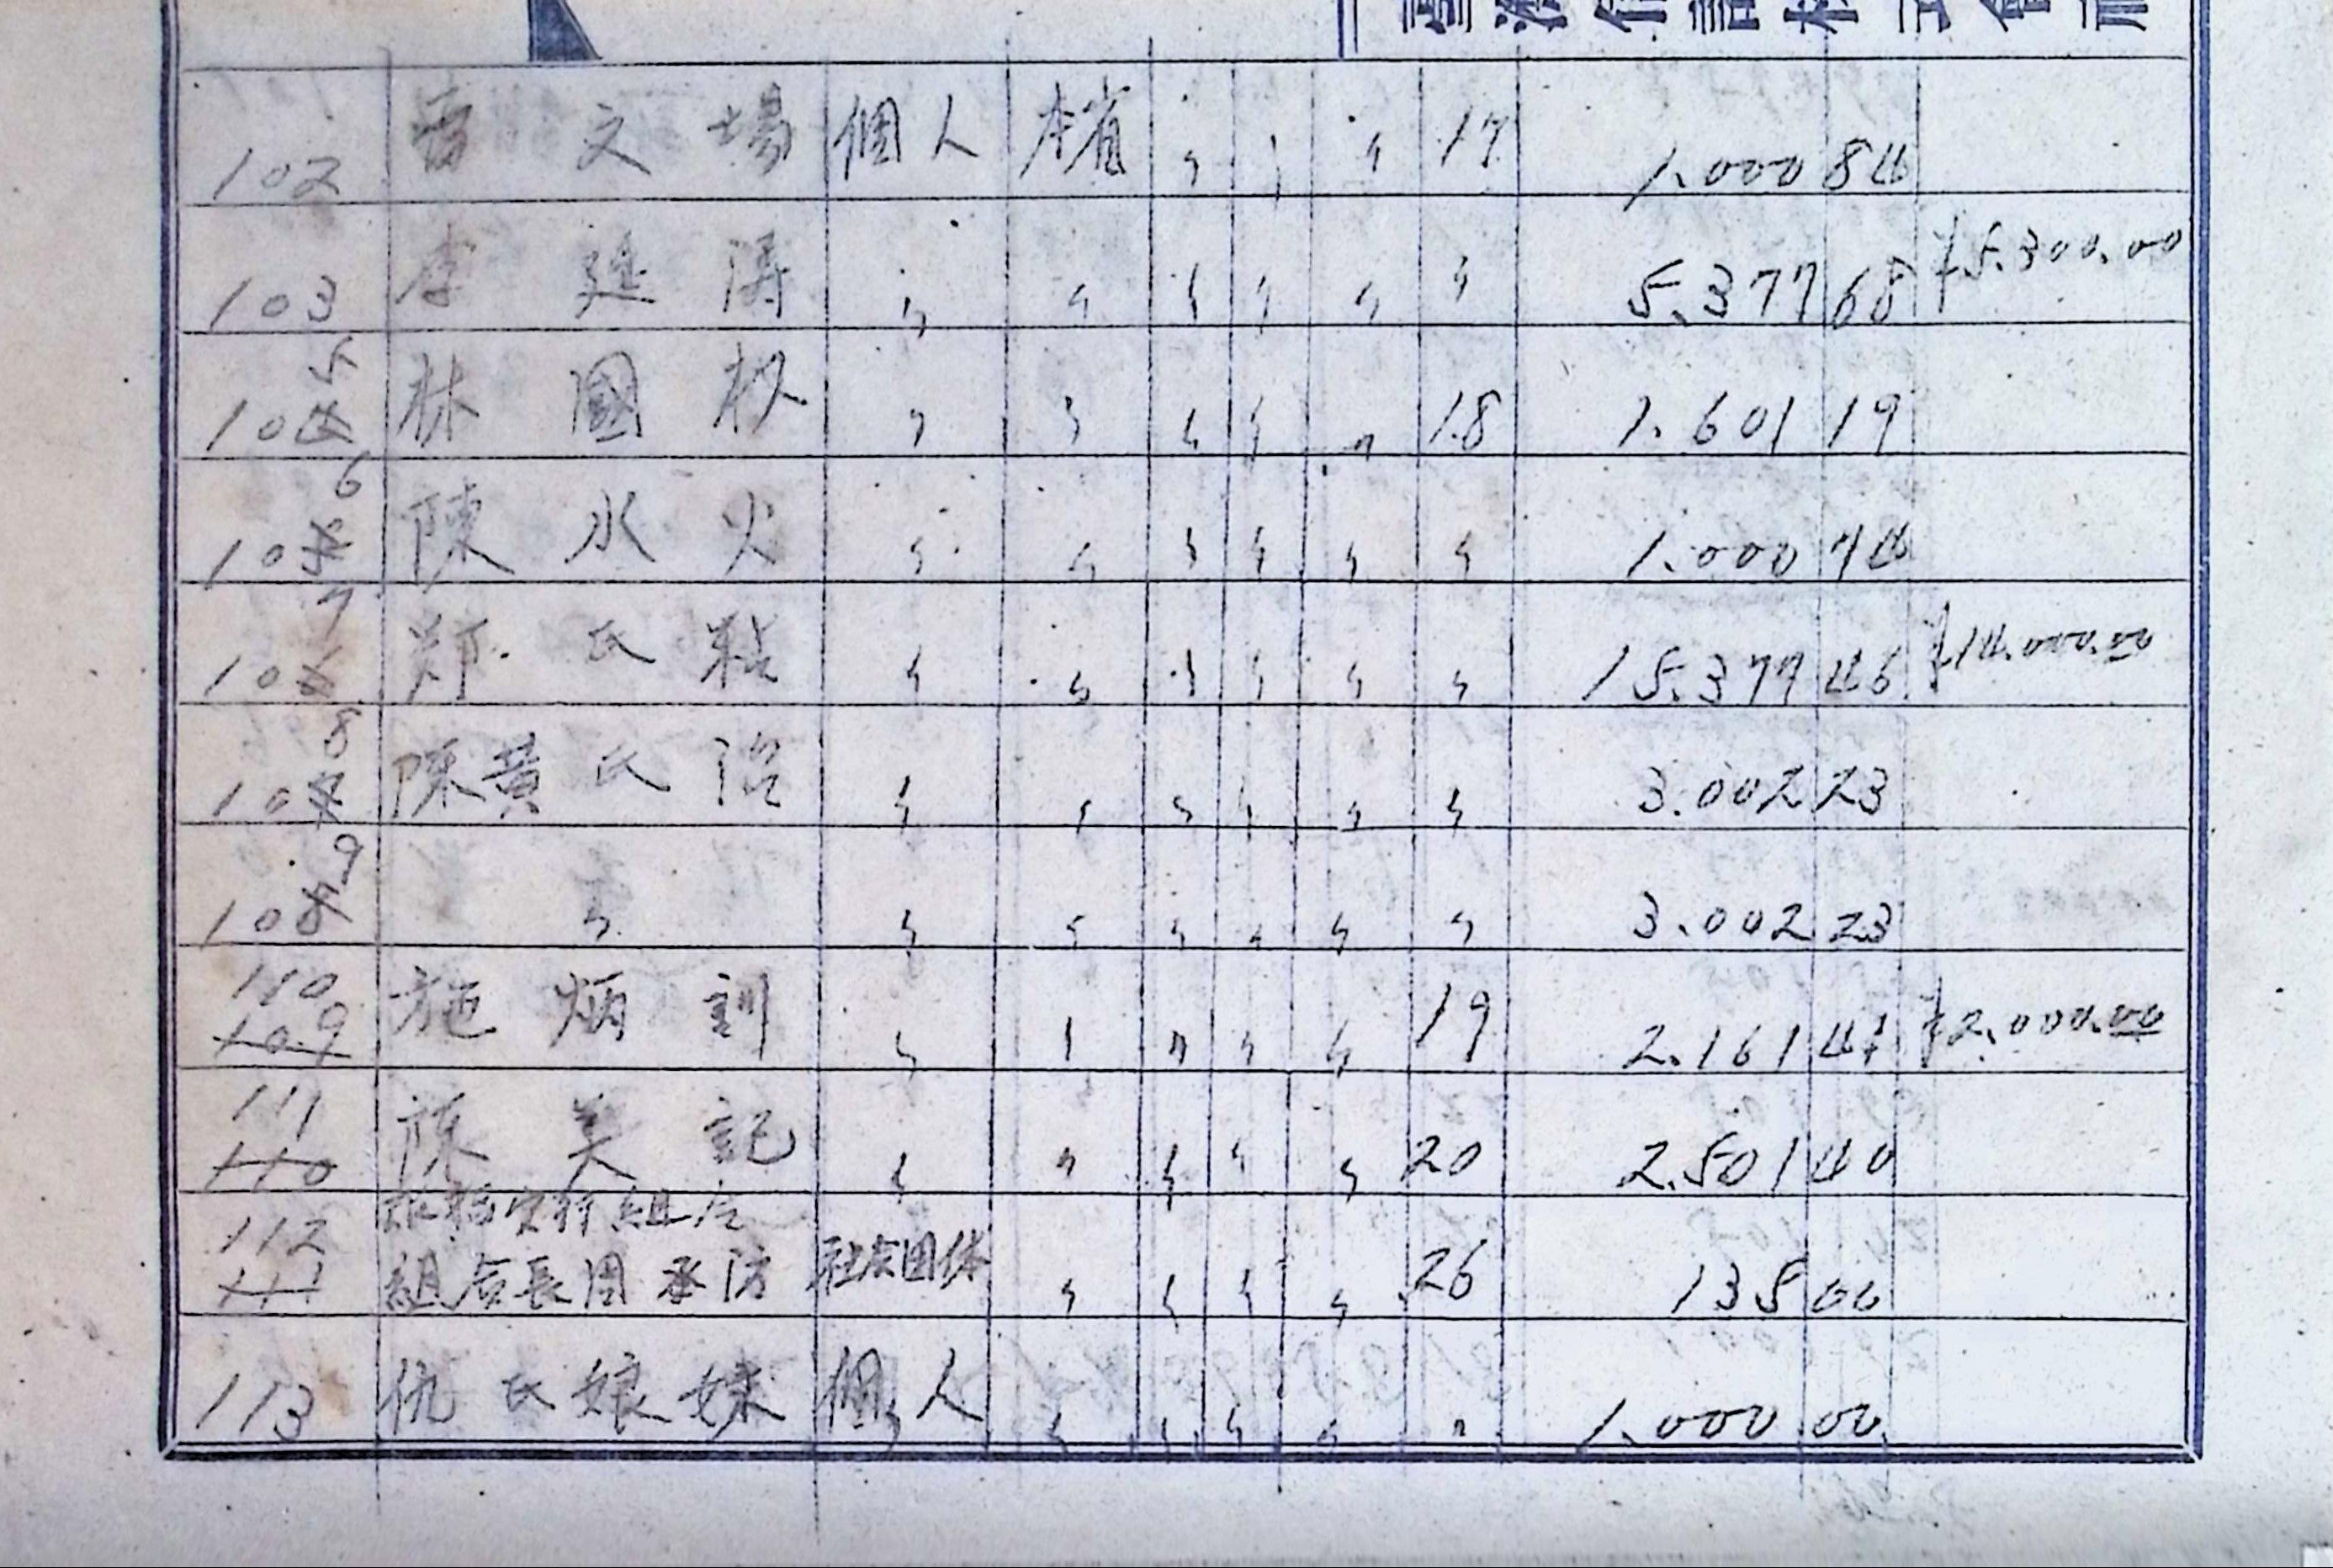 臺灣信託株式會社
102 曹文場 個人 本省 〃 〃 〃 17 1.000 84
103 李延濤 〃 〃 〃 〃 〃 〃 5.377 68 ¥5.300.00
1045 林國权 〃 〃 〃 〃 〃 18 1.601 19
1056 陳水火 〃 〃 〃 〃 〃 〃 1.000 74
1067 鄭氏粘 〃 〃 〃 〃 〃 〃 15.377 46 ¥14.000.00
1078 陳黃氏 〃 〃 〃 〃 〃 〃 3.002 23
1089 〃 〃 〃 〃 〃 〃 〃 3.002 23
110
109 施炳訓 〃 〃 〃 〃 〃 19 2.161 47 ¥2.000.00
111
110 陳美記 〃 〃 〃 〃 〃 20 2.501 40
112 組合
111 組合長周承防 社会団体 〃 〃 〃 〃 26 135 00
113 仇氏娘妹 個人 〃 〃 〃 〃 〃 1.000 00